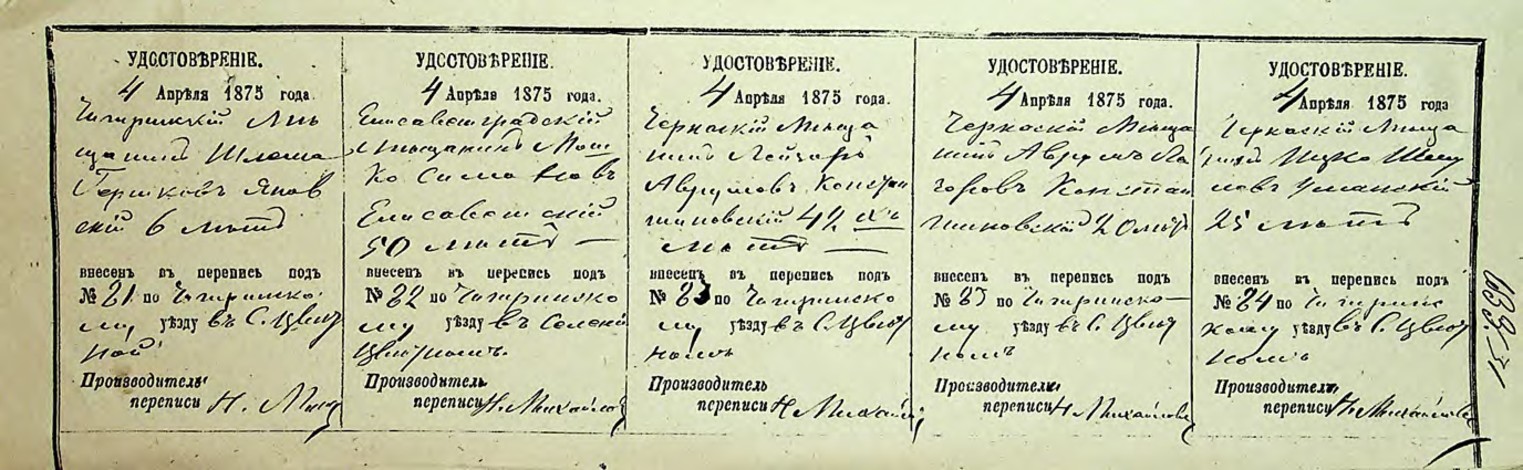 УДОСТОВѢРЕНІЕ.
4 Апрѣля 1875 года.
Чигиринскій Мѣ
щанинъ Шлема
Гершковъ Янов
скій 6 лѣтъ
внесенъ въ перепись подъ
№ 81 по Чигиринско
му уѣзду въ С. Цвѣт
ной
Производитель
переписи Н. Мих
УДОСТОВѢРЕНІЕ.
4 Апрѣля 1875 года.
Елисаветградскій
мѣщанинъ Мош
ко Симоновъ
Елисаветскій
50 лѣтъ —
внесенъ въ перепись подъ
№ 82 по Чигиринско
му уѣзду въ Селеніи
Цвѣтномъ.
Производитель
переписи Н. Михайлов
УДОСТОВѢРЕНІЕ.
4 Апрѣля 1875 года.
Черкаскій Мѣща
нинъ Лейзоръ
Аврумовъ Констан
тиновскій 42 хъ
лѣтъ —
внесенъ въ перепись подъ
№ 83 по Чигиринско
му уѣзду въ С. Цвѣт
номъ
Производитель
переписи Н. Михай
УДОСТОВѢРЕНІЕ.
4 Апрѣля 1875 года.
Черкаскій Мѣща
нинъ Аврумъ Ла
зоровъ Констан
тиновскій 20 лѣтъ
внесенъ въ перепись подъ
№ 83 по Чигиринско
му уѣзду въ С. Цвѣт
номъ
Производитель
переписи Н. Михайловъ
УДОСТОВѢРЕНІЕ.
4 Апрѣля 1875 года
Черкаскій Мѣща
нинъ Ицко Шму
ловъ Уманскій
25 лѣтъ
внесенъ въ перепись подъ
№ 84 по Чигиринс
кому уѣзду въ С. Цвѣт
номъ
Производитель
переписи Н. Михайловъ